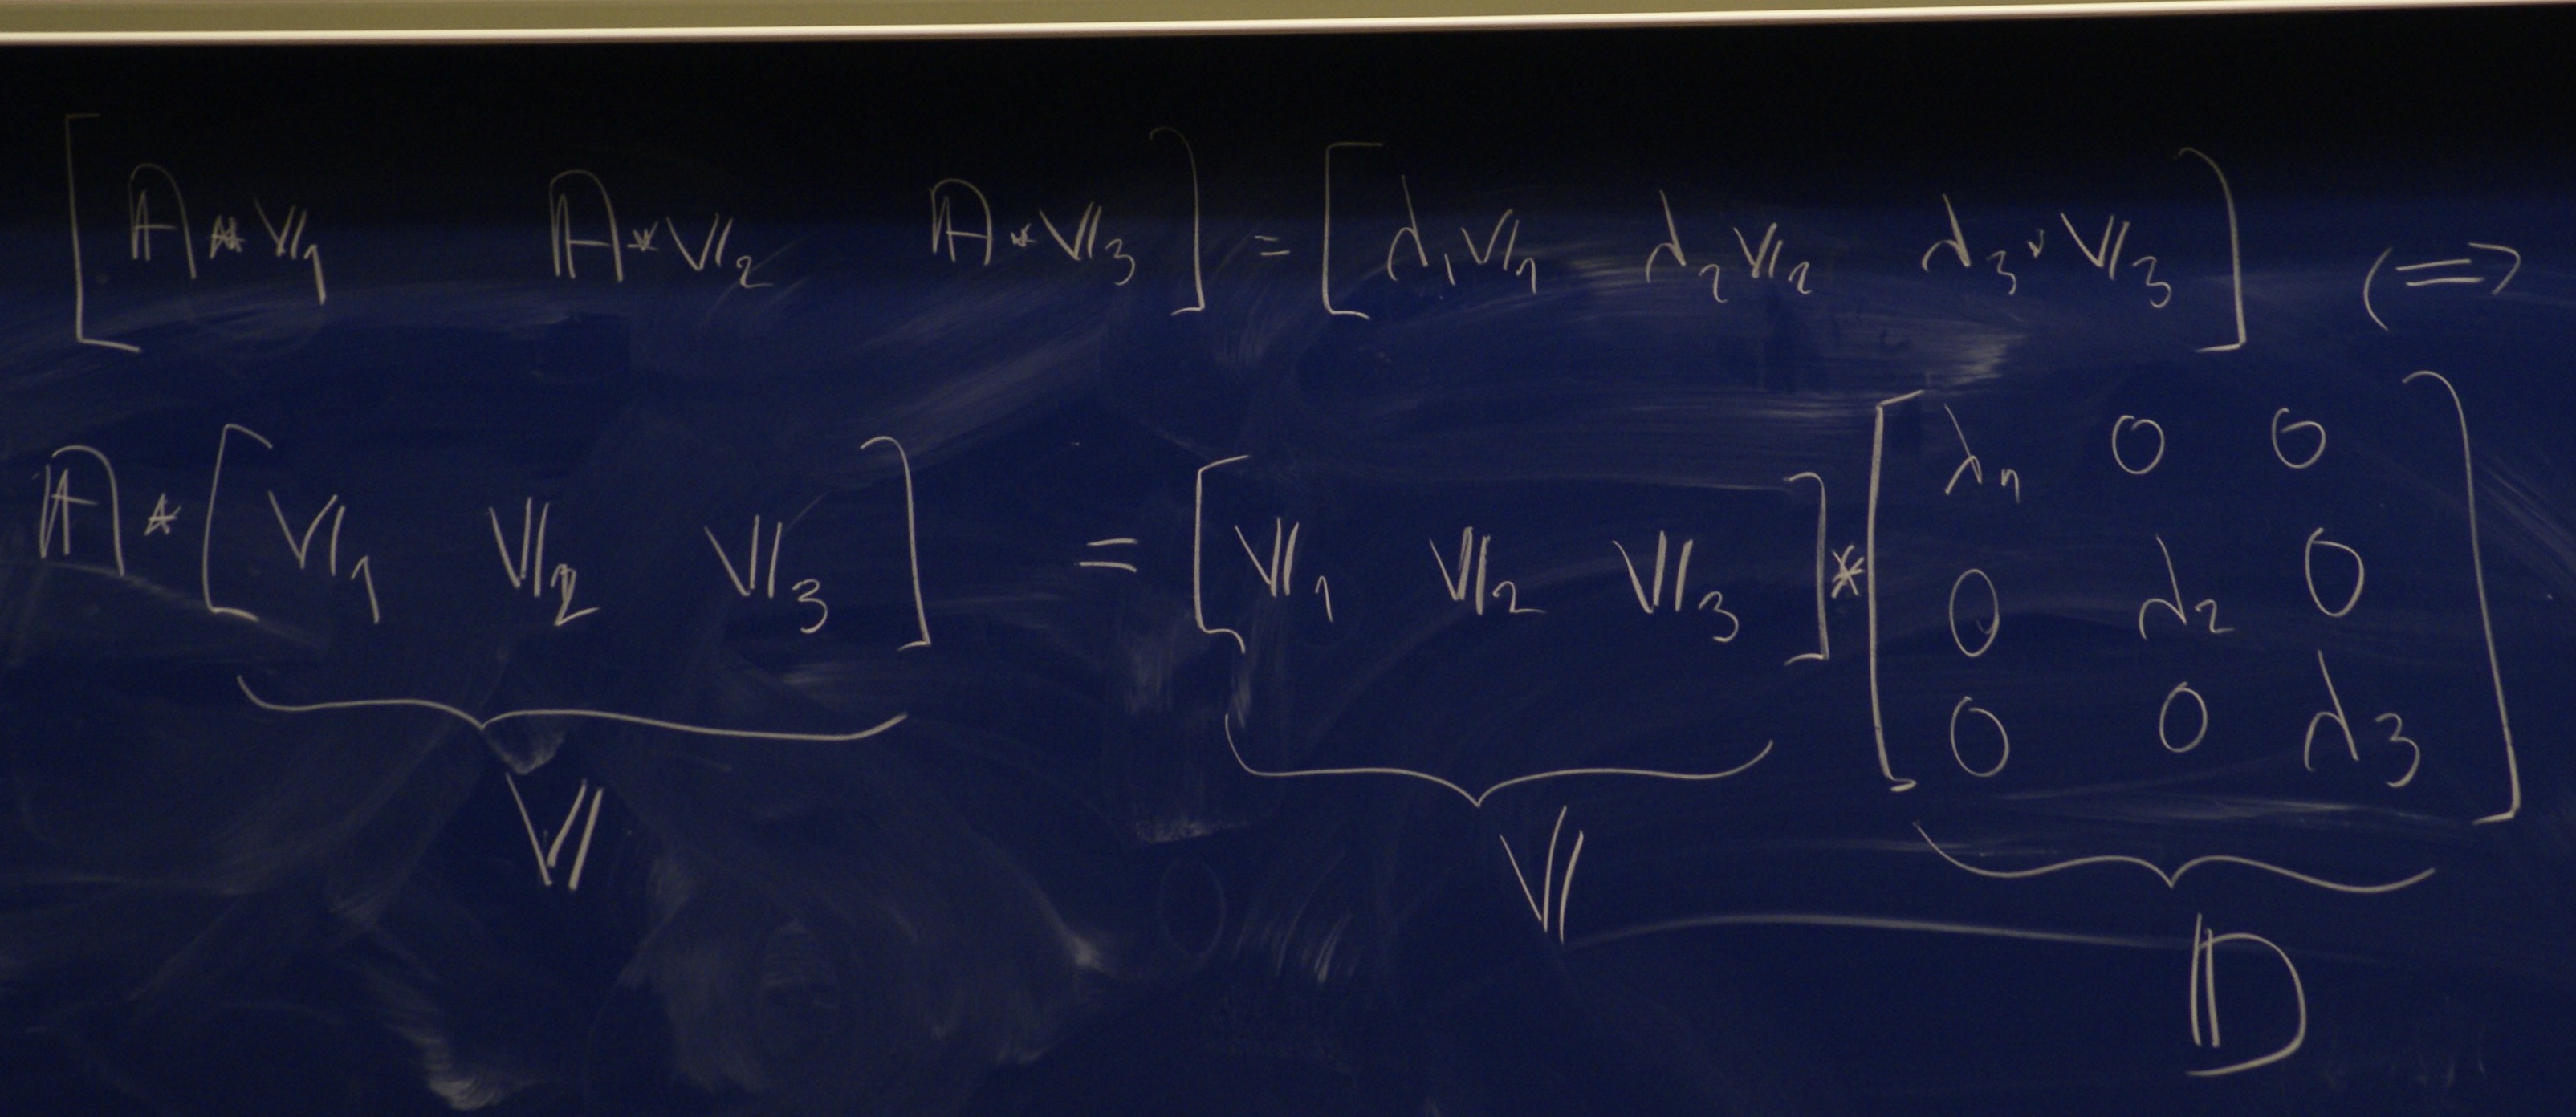 [ 𝔸 * 𝕍₁ 𝔸 * 𝕍₂ 𝔸 * 𝕍₃ ] = [ λ₁𝕍₁ λ₂𝕍₂ λ₃·𝕍₃ ] (=>
𝔸 * [ 𝕍₁ 𝕍₂ 𝕍₃ ] = [ 𝕍₁ 𝕍₂ 𝕍₃ ] * [ λ₁ 0 0
0 λ₂ 0
0 0 λ₃ ]
𝕍 𝕍 𝔻